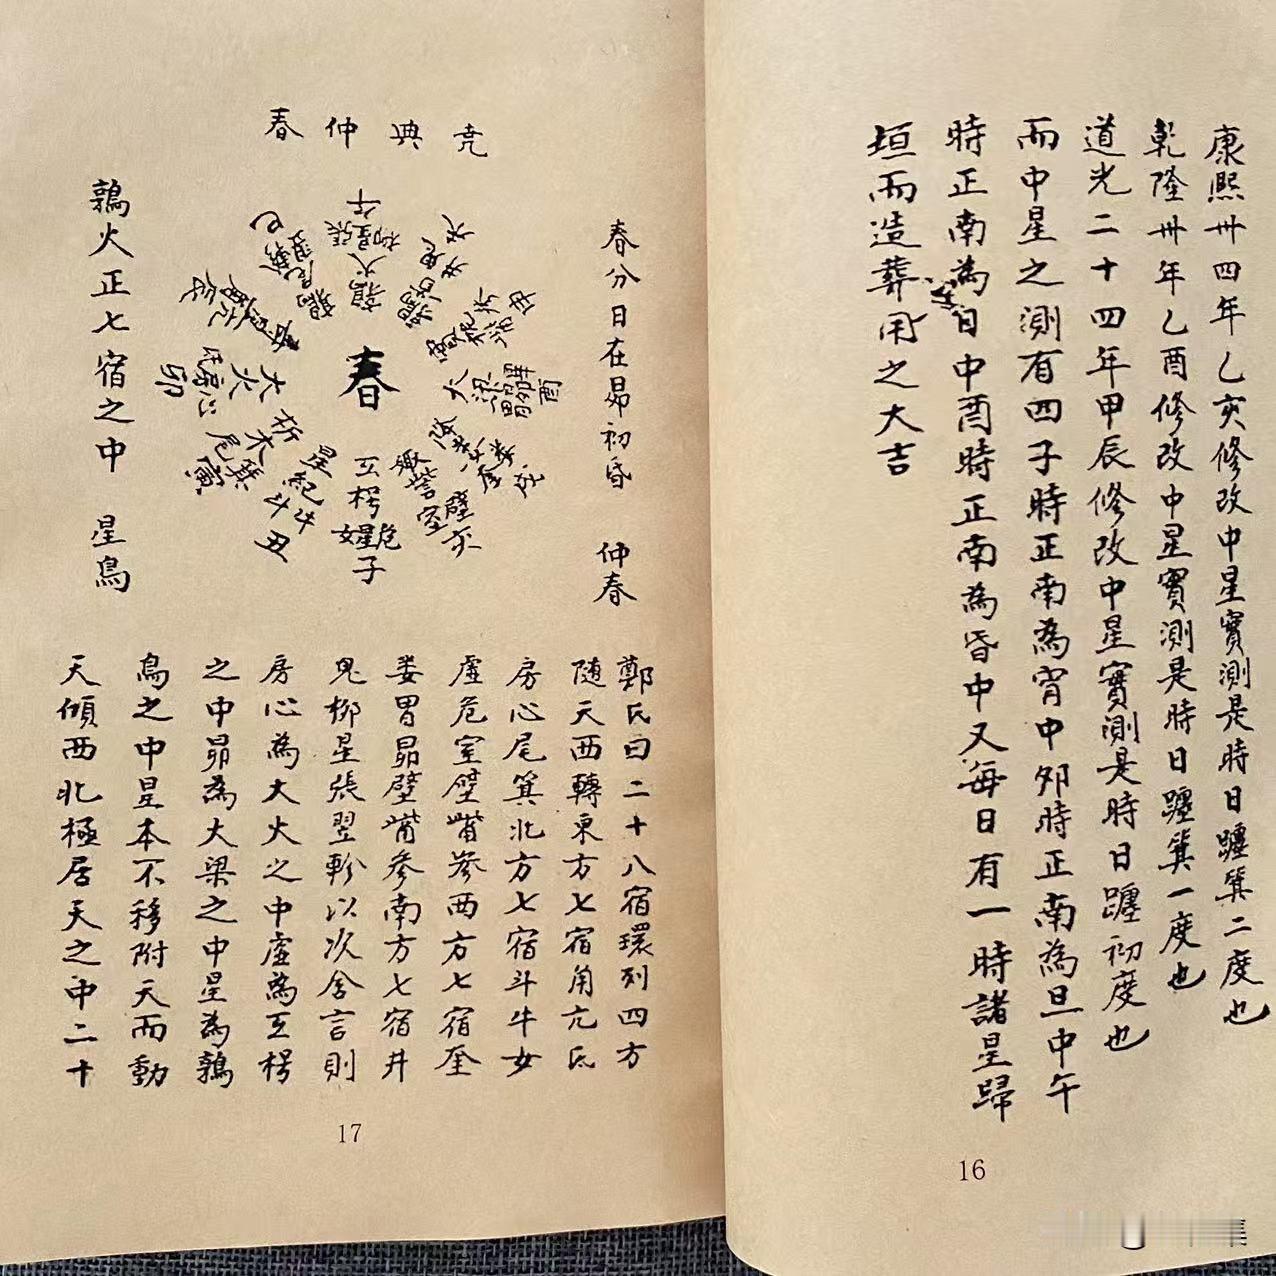 康熙卅四年乙亥修改中星實測是時日躔箕二度也
乾隆卅年乙酉修改中星實測是時日躔箕一度也
道光二十四年甲辰修改中星實測是時日躔初度也
而中星之測有四子時正南為宵中夘時正南為旦中午
時正南為日中酉時正南為昏中又每日有一時諸星歸
垣而造葬用之大吉
16
堯典仲春
春分日在昴初昏 仲春
春
午
柳星張
鶉火
未
井鬼
鶉首
申
實沈
酉
胃昴畢
大梁
戌
奎婁
降婁
亥
室壁
娵訾
子
女虛危
玄枵
丑
斗牛
星紀
寅
尾箕
析木
卯
氐房心
大火
辰
巳
翼軫
鶉尾
鶉火正七宿之中 星鳥
鄭氏曰二十八宿環列四方
随天西轉東方七宿角亢氐
房心尾箕北方七宿斗牛女
虛危室壁觜參西方七宿奎
娄胃昴壁觜參南方七宿井
鬼柳星張翌軫以次舍言則
房心為大火之中虛為玄枵
之中昴為大梁之中星為鶉
鳥之中星本不移附天而動
天傾西北極居天之中二十
17